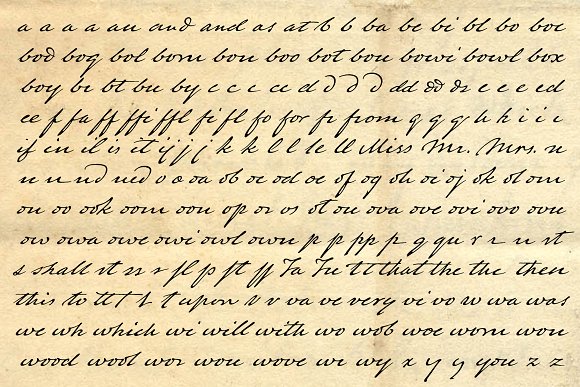 a a a a au aud and as at b b ba be bi bl bo boc
bod bog bol bom bon boo bot bou bowi bowl box
boy br bt bu by c c c ca d d d d dd dd dr e e e ed
ee f fa ff ffi ffl fi fl fo for fr from g g g h h i i i
if in il is it ij j j k k l l le ll Miss Mr. Mrs. n
n n nd ned o a oa ob oc od oe of og oh oi oj ok ol om
on oo ook oom oon op or os ot ou ova ove ovi ovo ovu
ow owa owe owi owl own p p pp p q qu r r n rt
s shall st ss r fl fp ft ff Ta Tu tt that the the then
this to tt t t t upon v v va ve very vi vo w wa was
we wh which wi will with wo wob woe worn won
wood wool wor wou wove wr wy x y y you z z